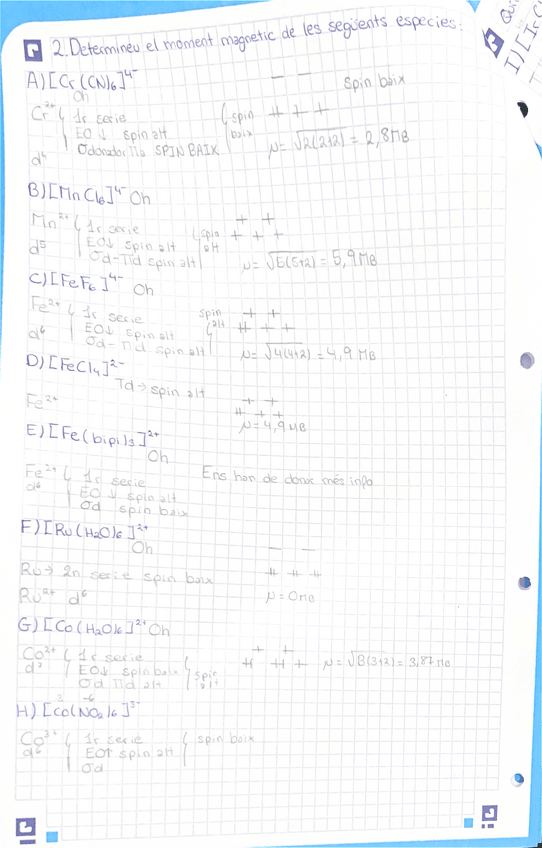 2. Determineu el moment magnetic de les següents especies:
A) [Cr(CN)6]4-
Oh
Spin baix
Cr2+ 1r serie
EO↓ spin alt
σdonador πa SPIN BAIX
spin baix
d4
μ = √2(2+2) = 2,8 MB
B) [MnCl6]4- Oh
Mn2+ 1r serie
d5 EO↓ spin alt
σd-πd spin alt
spin alt
μ = √5(5+2) = 5,9 MB
C) [FeF6]4- Oh
Fe2+ 1r serie
d6 EO↓ spin alt
σd-πd spin alt
spin alt
μ = √4(4+2) = 4,9 MB
D) [FeCl4]2-
Td → spin alt
Fe2+
μ = 4,9 MB
E) [Fe(bipi)3]2+
Oh
Fe2+ 1r serie
d6 EO↓ spin alt
σd spin baix
Ens han de donar més info
F) [Ru(H2O)6]2+
Oh
Ru → 2n serie spin baix
Ru2+ d6
μ = 0 MB
G) [Co(H2O)6]2+ Oh
Co2+ 1r serie
d7 EO↓ spin baix
σd πd alt
spin alt
μ = √3(3+2) = 3,87 MB
3 -6
H) [Co(NO2)6]3-
Co3+ 1r serie
d6 EO↑ spin alt
σd
spin baix
I) [Ir(